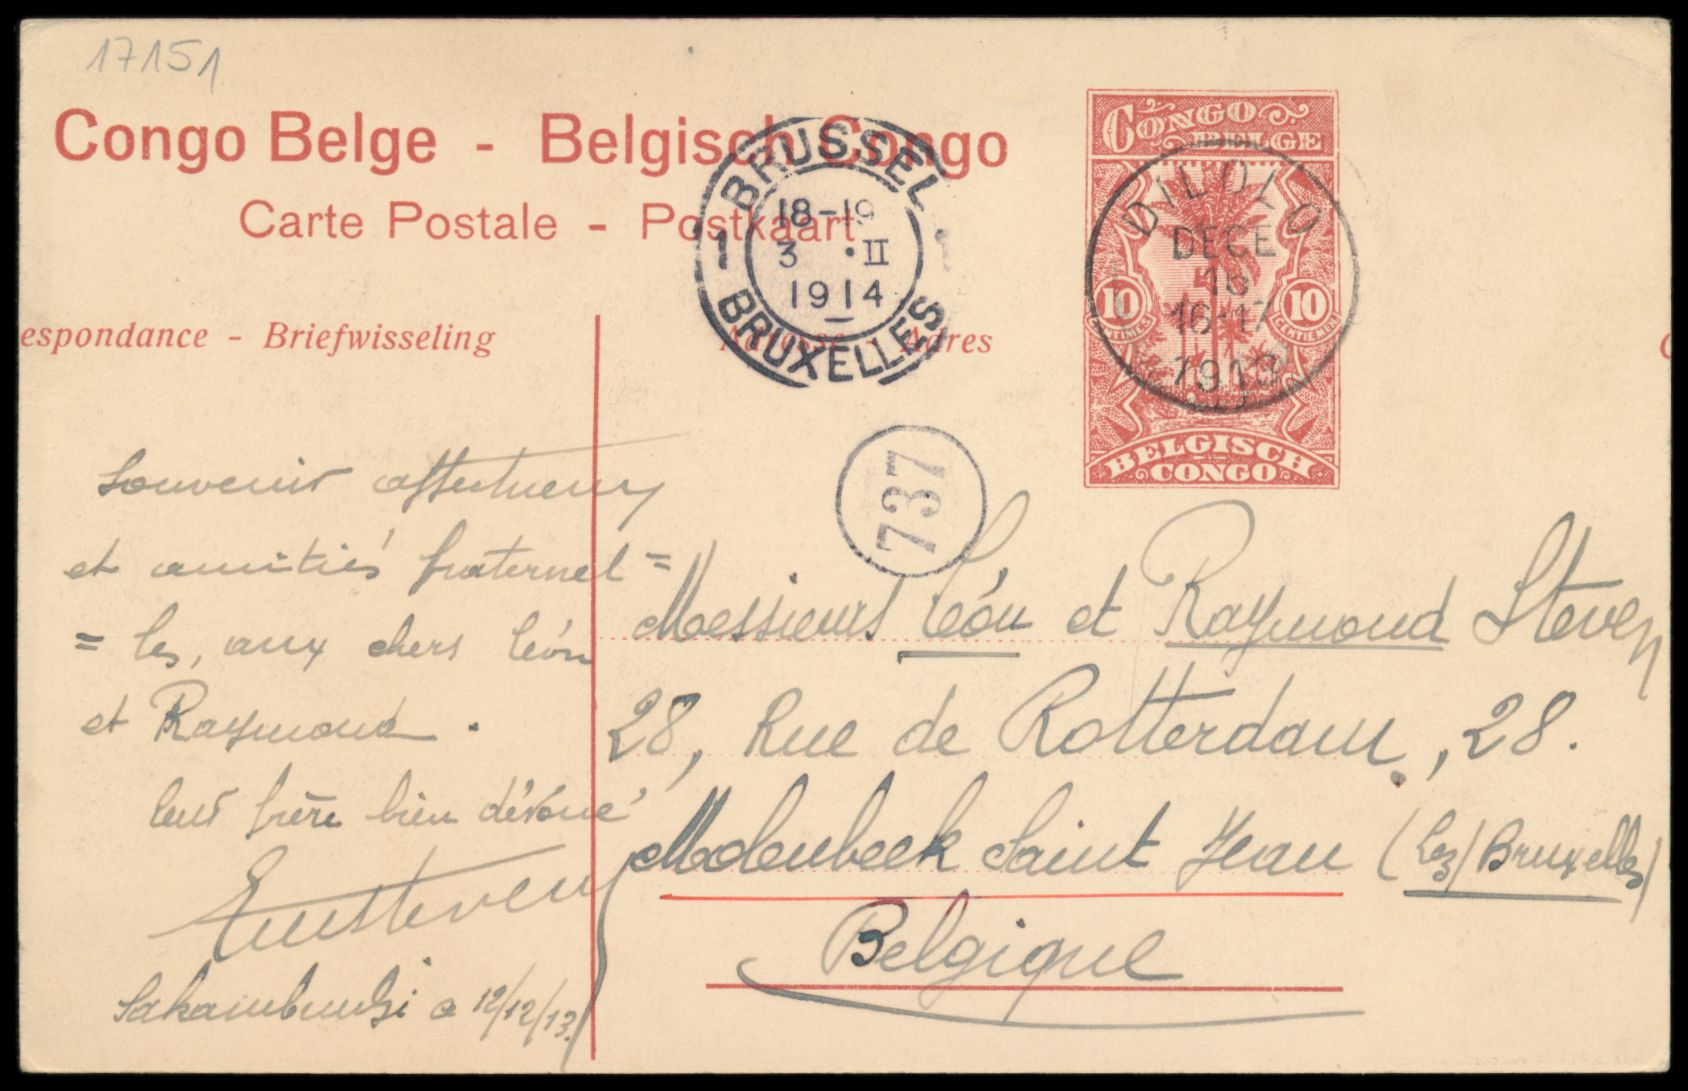 17151
Congo Belge - Belgisch Congo
Carte Postale - Postkaart
espondance - Briefwisseling
Adres
CONGO
BELGE
10
10
CENTIEMEN
BELGISCH
CONGO
DILOLO
DECE
16
16-17
1913
BRUSSEL
18-19
3 · II
1914
1
BRUXELLES
737
Souvenir affectueux
et amitiés fraternel=
=les, aux chers Léon
et Raymond.
leur frère bien dévoué
Sakambundji a 12/12/13.
Messieurs Léon et Raymond Steven
28, Rue de Rotterdam, 28.
Molenbeek Saint Jean (Lez) Bruxelles)
Belgique